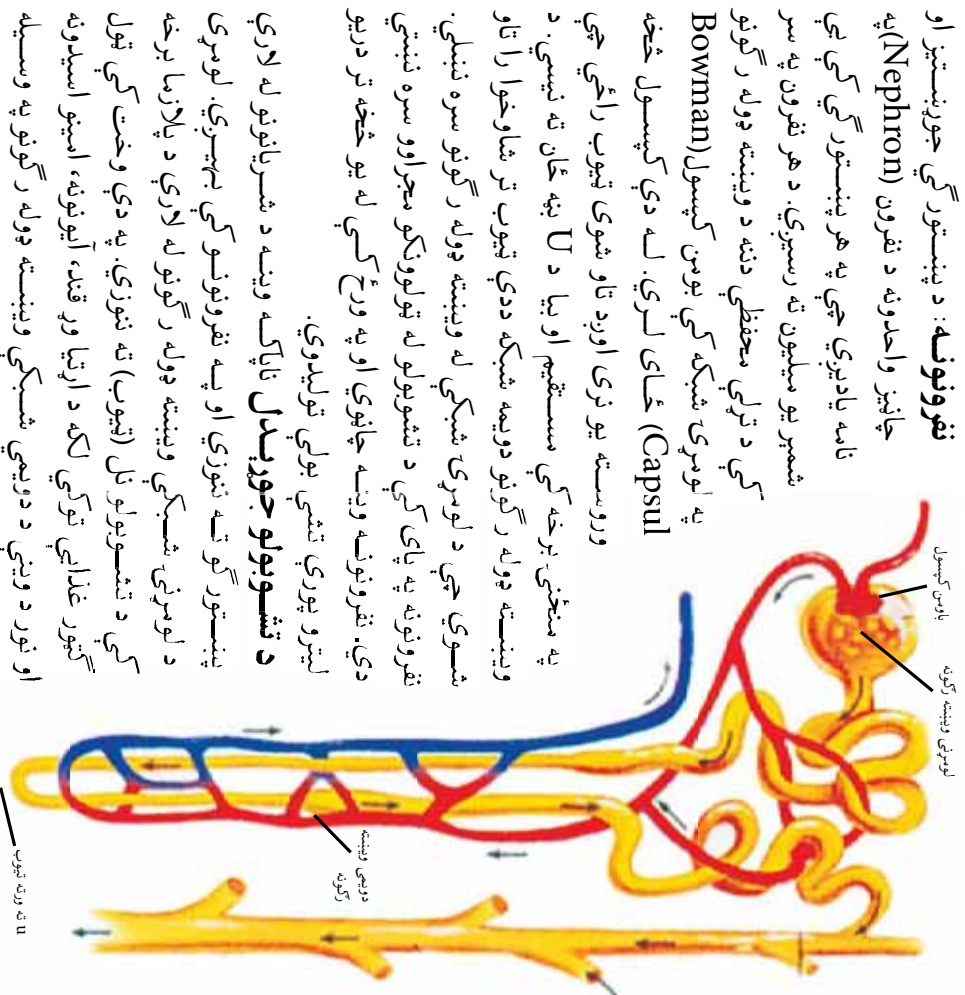 نفرونونـه: د پښـتورګي جوړښـتيز او
چانيز واحدونه د نفرون (Nephron)په
نامه يادېږي چې په هر پښـتورګي کې يې
شمېر يو ميليون ته رسېږي. د هر نفرون په سر
کې د ترلې محفظې دننه د وېښته ډوله رګونو
په لومړۍ شبکه کې بومن کپسول(Bowman
Capsul) ځای لـري. لـه دې کپسـول څخه
وروسـته يو نری اوږد تاو شوی ټيوب راځي چې
په منځنۍ برخه کې مسـتقيم او بيا د U بڼه ځان ته نيسي. د
وېښـته ډوله رګونو دويمه شبکه ددې ټيوب تر شاوخوا را تاو
شـوې چې د لومړۍ شبکې له وېښته ډوله رګونو سره نښلي.
نفرونونه په پای کې د تشوبولو له ټولوونکو مجراوو سره نښتي
دي. نفرونونـه وينـه چاڼوي او په ورځ کـې له يو څخه تر دريو
ليترو پورې تشې بولې توليدوي.
د تشـوبولو جوړېـدل ناپاکـه وينـه د شـريانونو له لارې
پښـتورګو تـه ننوزي او پـه نفرونونـو کـې بهيـږي. لومړی
د لومړنۍ شـبکې وېښته ډوله رګونو له لارې د پلازما برخه
کې د تشـوبولو نل (ټيوب) ته ننوزي. په دې وخت کې ټول
ګټور غذايي توکي لکه د اړتيا وړ قند، آيونونه، امينو اسيدونه
او نور د وينې د دويمې شـبکې وېښـته ډوله رګونو په وسـيله
باومن کپسول
لومړنۍ وېښته رګونه
دويمي وېښته
رګونه
u ته ورته ټيوب